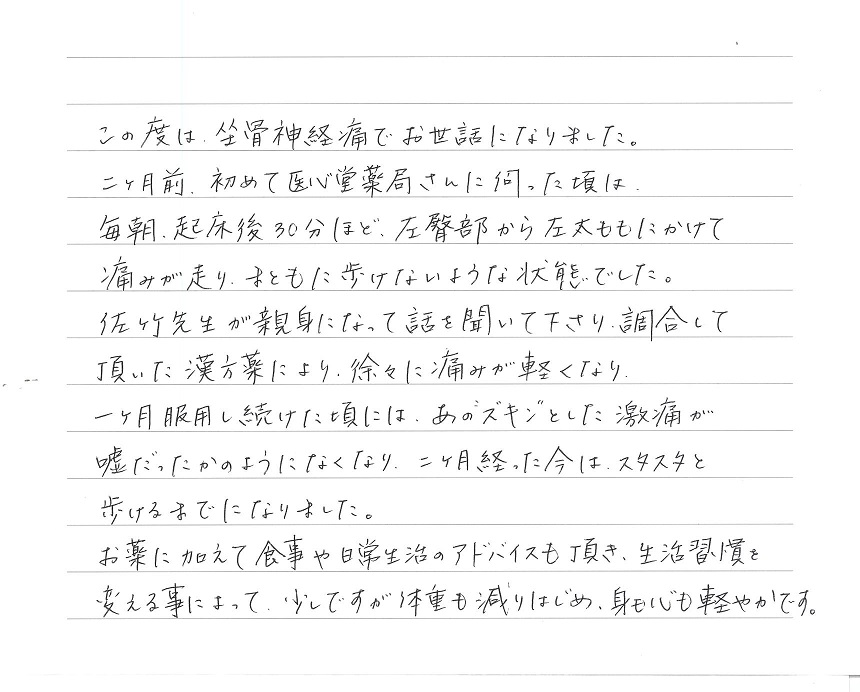 この度は、坐骨神経痛でお世話になりました。
二ヶ月前、初めて医心堂薬局さんに伺った頃は、
毎朝、起床後30分ほど、左臀部から左太ももにかけて
痛みが走り、まともに歩けないような状態でした。
佐竹先生が親身になって話を聞いて下さり、調合して
頂いた漢方薬により、徐々に痛みが軽くなり、
一ヶ月服用し続けた頃には、あのズキンとした激痛が
嘘だったかのようになくなり、二ヶ月経った今は、スタスタと
歩けるまでになりました。
お薬に加えて食事や日常生活のアドバイスも頂き、生活習慣を
変える事によって、少しですが体重も減りはじめ、身も心も軽やかです。